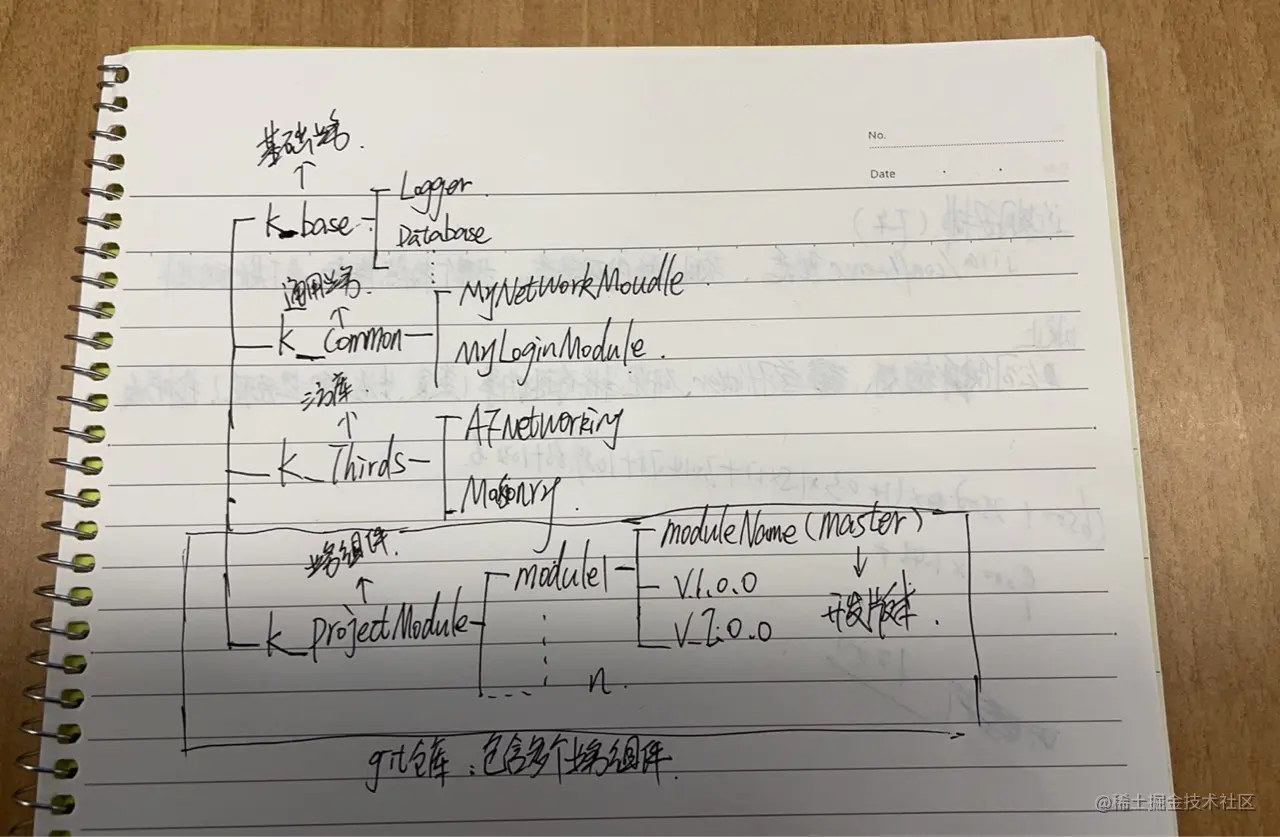 No.
Date
基础业务.
↑
K_base
Logger
Database
通用业务.
↑
K_Common
MyNetWorkMoudle.
MyLoginModule.
三方库
↑
K_Thirds
AFNetworking
Masonry.
业务组件.
↑
K_projectModule
module1
n.
moduleName(master)
V.1.0.0
V_2.0.0
↓
开发版本.
git仓库:包含多个业务组件.
@稀土掘金技术社区